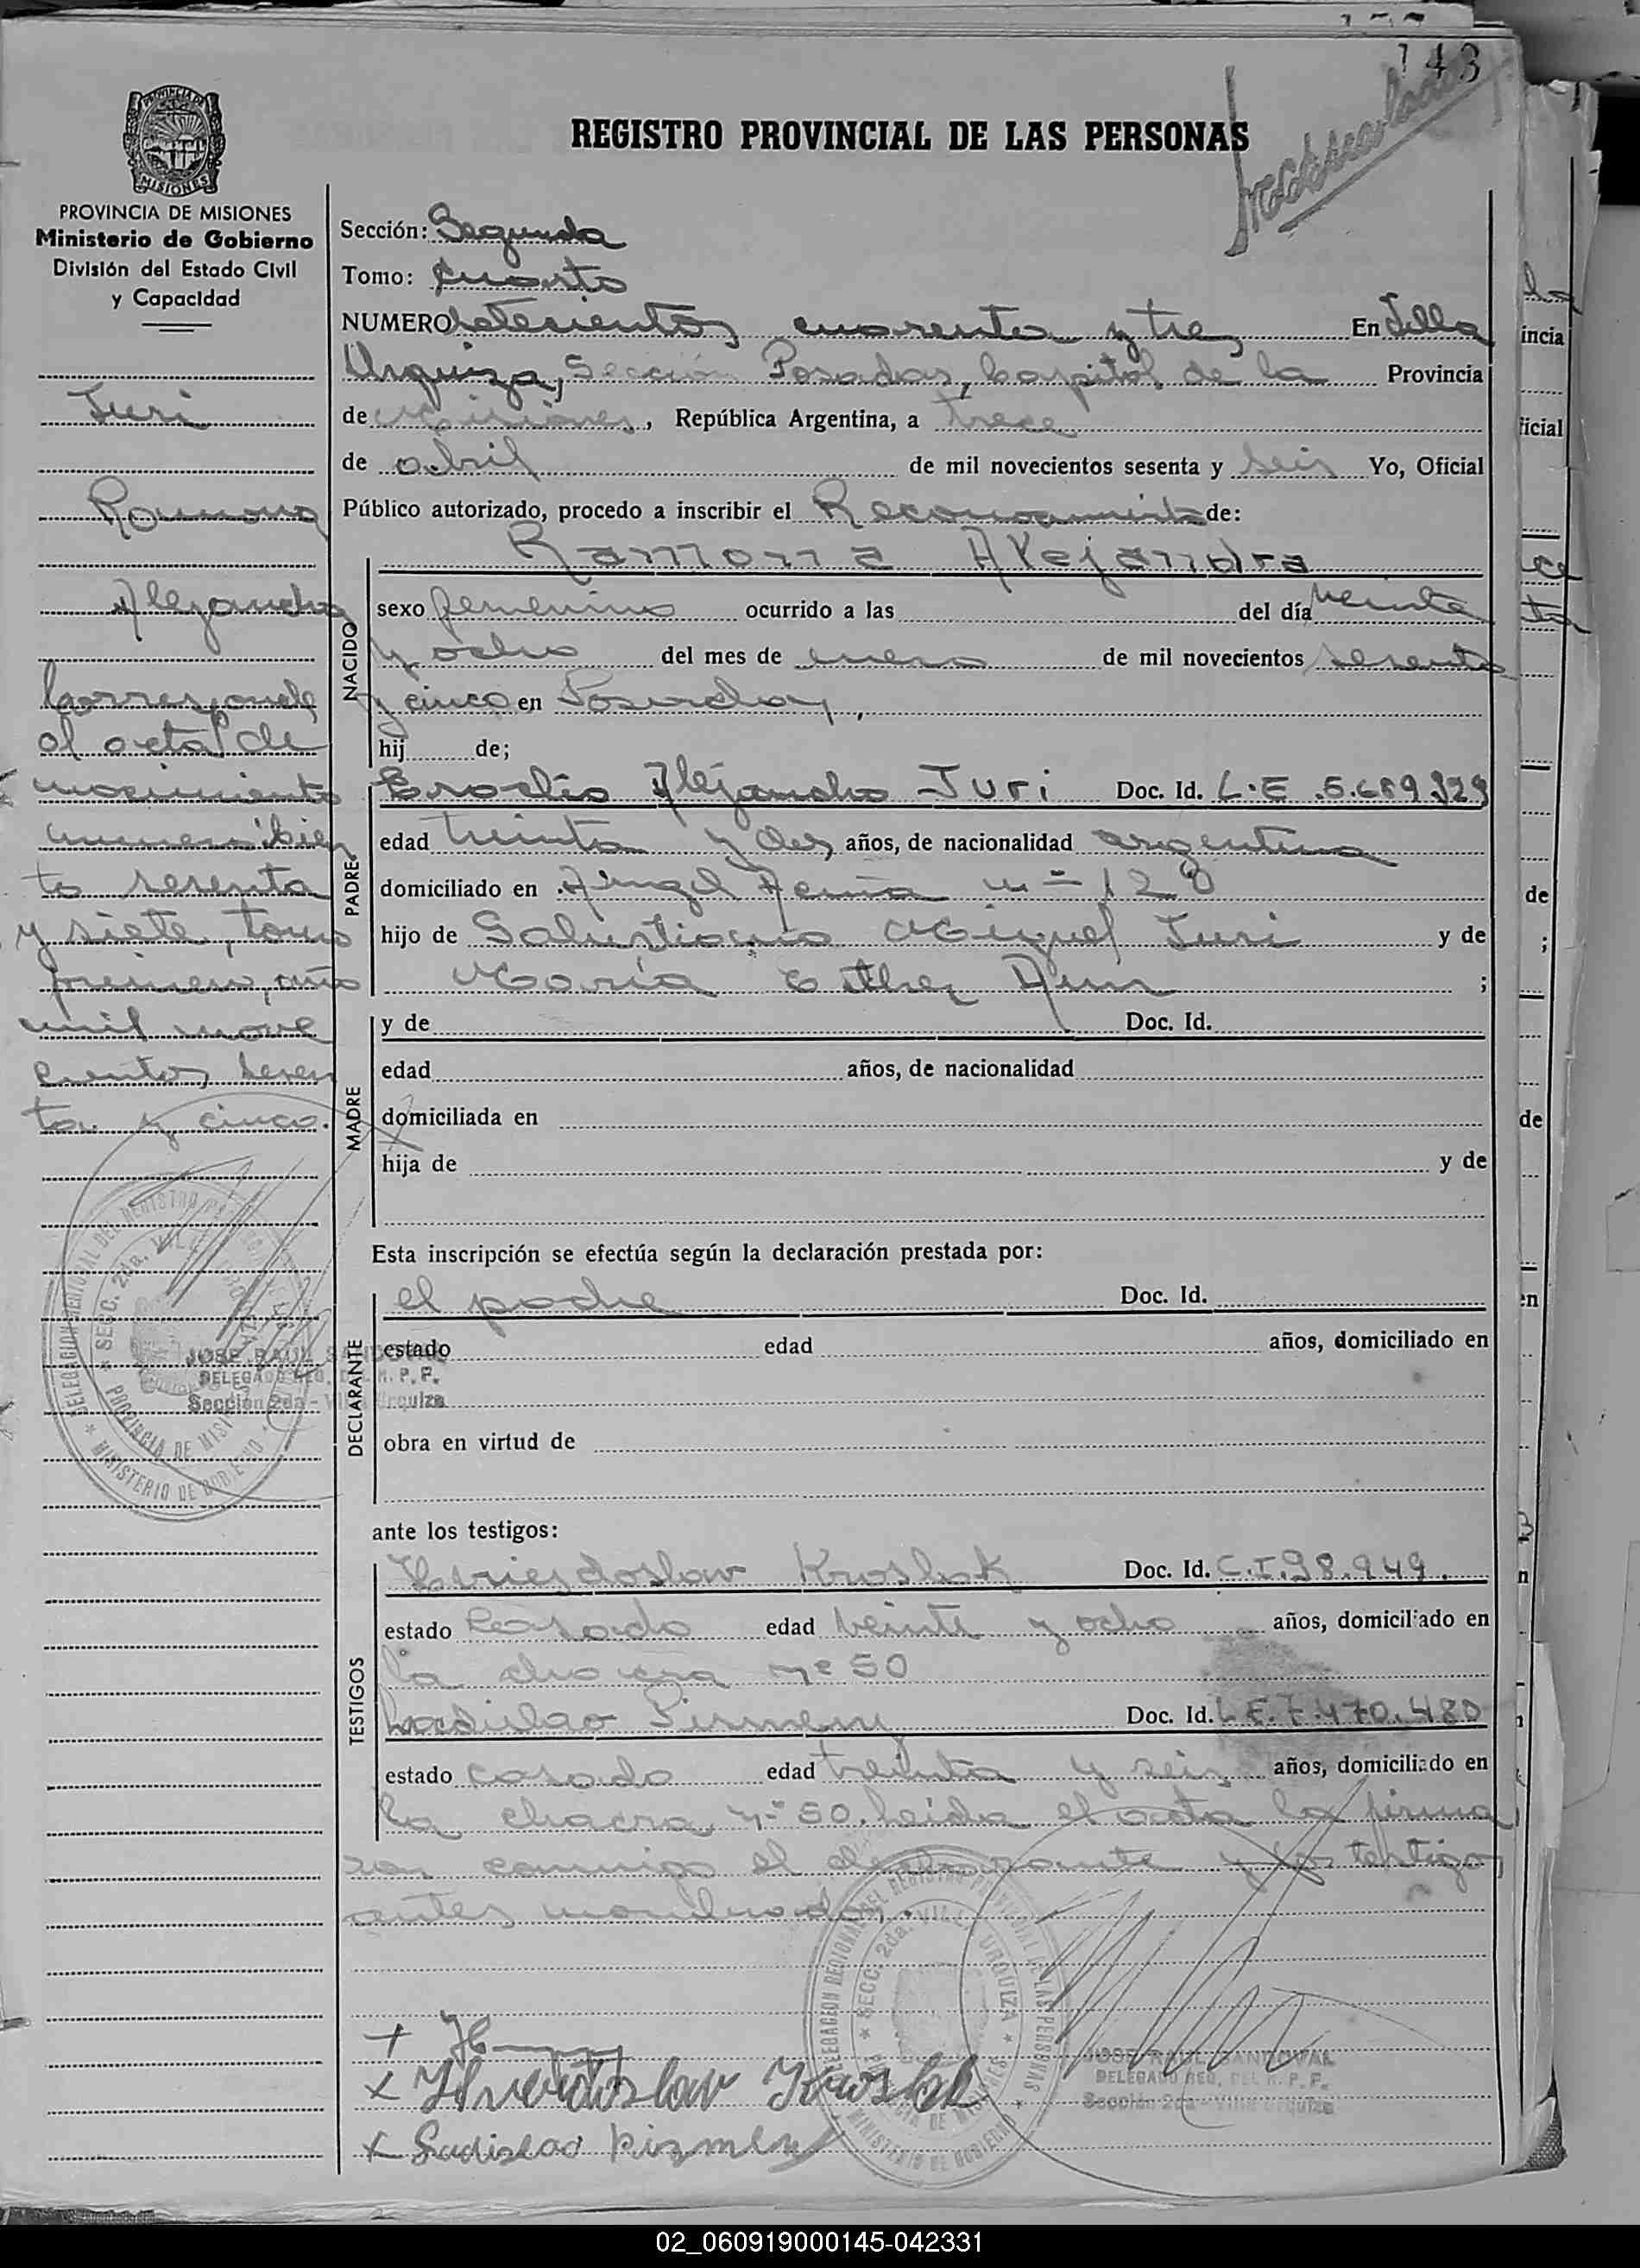 143
REGISTRO PROVINCIAL DE LAS PERSONAS
MISIONES
PROVINCIA DE MISIONES
Ministerio de Gobierno
División del Estado Civil
y Capacidad
Juri
Ramona
Alejandra
Corresponde
al acta de
nacimiento
numero cien
to sesenta
y siete, tomo
primero, año
mil nove
cientos sesen
ta y cinco.
Sección: Segunda
Tomo: Cuarto
NUMERO setecientos cuarenta y tres En Villa
Urquiza, Sección Posadas, Capital de la Provincia
de Misiones, República Argentina, a trece
de abril de mil novecientos sesenta y seis Yo, Oficial
Público autorizado, procedo a inscribir el Reconocimiento de:
Ramona Alejandra
NACIDO
sexo femenino ocurrido a las del día veinte
y ocho del mes de enero de mil novecientos sesenta
y cinco en Posadas,
hij de;
PADRE
Alejandro Juri Doc. Id. L.E 5.689.329
edad treinta y dos años, de nacionalidad argentina
domiciliado en Angel Acuña nº 128
hijo de Salustiano Miguel Juri y de
María Esther ;
MADRE
y de Doc. Id.
edad años, de nacionalidad
domiciliada en
hija de y de
Esta inscripción se efectúa según la declaración prestada por:
DECLARANTE
el padre Doc. Id.
estado edad años, domiciliado en
obra en virtud de
JOSE RAUL SANDOVAL
DELEGADO REG. DEL R. P. P.
Sección 2da - Villa Urquiza
DELEGACION REGIONAL DEL REGISTRO PROVINCIAL DE LAS PERSONAS
SECC. 2da. VILLA URQUIZA
PROVINCIA DE MISIONES
MINISTERIO DE GOBIERNO
ante los testigos:
TESTIGOS
Doc. Id. C.I. 98.949.
estado Casado edad veinte y ocho años, domiciliado en
la chacra nº 50
Ladislao Doc. Id. L.E. 7.470.480
estado casado edad treinta y seis años, domiciliado en
la chacra nº 50. Leida el acta la firma
ron conmigo el declarante y los testigos
antes nombrados.
DELEGACION REGIONAL DEL REGISTRO PROVINCIAL DE LAS PERSONAS
SECC. 2da. VILLA URQUIZA
PROVINCIA DE MISIONES
MINISTERIO DE GOBIERNO
JOSE RAUL SANDOVAL
DELEGADO REG. DEL R. P. P.
Sección 2da - Villa Urquiza
Ladislao
02_060919000145-042331